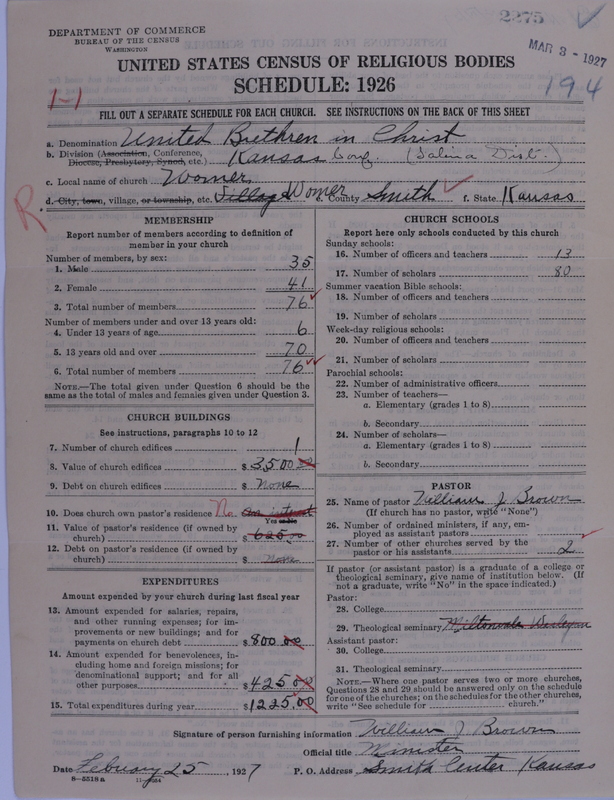 2275
DEPARTMENT OF COMMERCE
BUREAU OF THE CENSUS
WASHINGTON
MAR 3 - 1927
UNITED STATES CENSUS OF RELIGIOUS BODIES
SCHEDULE: 1926
194
1-1
FILL OUT A SEPARATE SCHEDULE FOR EACH CHURCH. SEE INSTRUCTIONS ON THE BACK OF THIS SHEET
a. Denomination United Brethren in Christ
b. Division (Association, Conference, Diocese, Presbytery, Synod, etc.) Kansas Conf. (Salina Dist.)
c. Local name of church Womer
d. City, town, village, or township, etc. Village Womer e. County Smith f. State Kansas
R
MEMBERSHIP
Report number of members according to definition of
member in your church
Number of members, by sex:
1. Male 35
2. Female 41
3. Total number of members 76
Number of members under and over 13 years old:
4. Under 13 years of age 6
5. 13 years old and over 70
6. Total number of members 76
NOTE.—The total given under Question 6 should be
same as the total of males and females given under Question 3.
CHURCH BUILDINGS
See instructions, paragraphs 10 to 12
7. Number of church edifices 1
8. Value of church edifices $ 3500 00
9. Debt on church edifices $ None
10. Does church own pastor's residence No.
Yes or No
11. Value of pastor's residence (if owned by
church) $ 625.00
12. Debt on pastor's residence (if owned by
church) $ none
EXPENDITURES
Amount expended by your church during last fiscal year
13. Amount expended for salaries, repairs,
and other running expenses; for im-
provements or new buildings; and for
payments on church debt $ 800 00
14. Amount expended for benevolences, in-
cluding home and foreign missions; for
denominational support; and for all
other purposes $ 425 00
15. Total expenditures during year $ 1225.00
CHURCH SCHOOLS
Report here only schools conducted by this church
Sunday schools:
16. Number of officers and teachers 13
17. Number of scholars 80
Summer vacation Bible schools:
18. Number of officers and teachers
19. Number of scholars
Week-day religious schools:
20. Number of officers and teachers
21. Number of scholars
Parochial schools:
22. Number of administrative officers
23. Number of teachers—
a. Elementary (grades 1 to 8)
b. Secondary
24. Number of scholars—
a. Elementary (grades 1 to 8)
b. Secondary
PASTOR
25. Name of pastor William J Brown
(If church has no pastor, write "None")
26. Number of ordained ministers, if any, em-
ployed as assistant pastors
27. Number of other churches served by the
pastor or his assistants 2
If pastor (or assistant pastor) is a graduate of a college or
theological seminary, give name of institution below. (If
not a graduate, write "No" in the space indicated.)
Pastor:
28. College
29. Theological seminary Miltonvale Wesleyan
Assistant pastor:
30. College
31. Theological seminary
NOTE.—Where one pastor serves two or more churches,
Questions 28 and 29 should be answered only on the schedule
for one of the churches; on the schedules for the other churches,
write "See schedule for church."
Signature of person furnishing information William J Brown
Official title Minister
Date Febuary 25, 1927 P. O. Address Smith Center Kansas
8-5518a